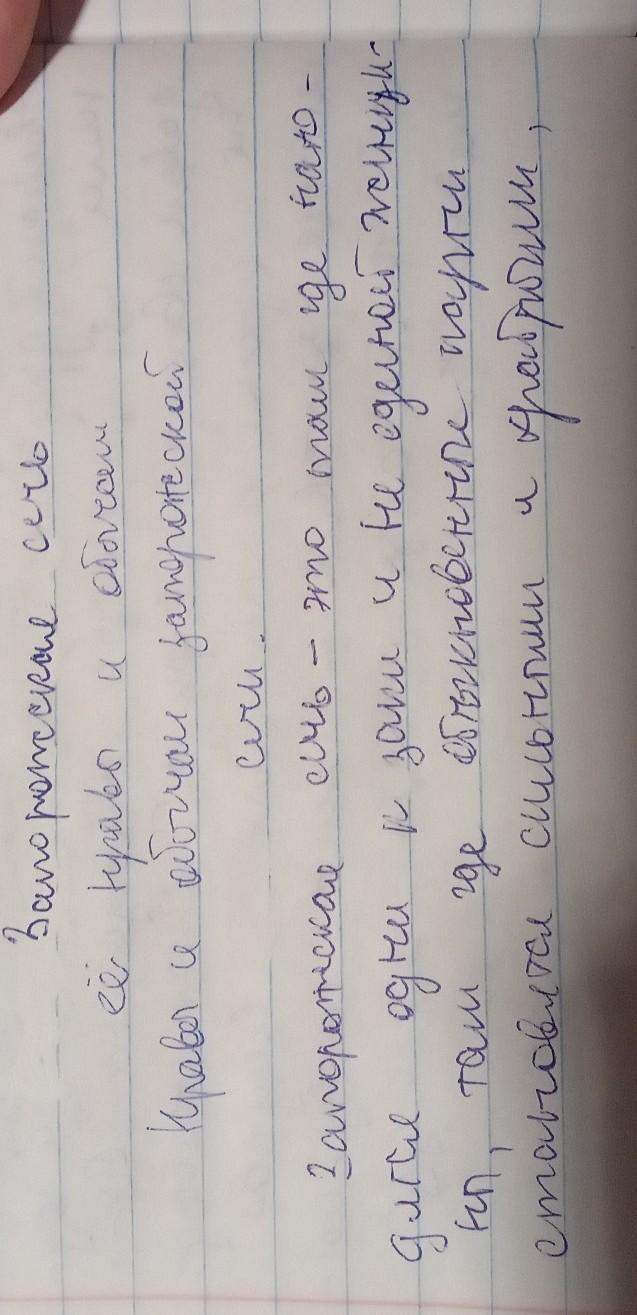 Запорожская сечь
её нравы и обычаи
Нравы и обычаи запорожской
сечи.
Запорожская сечь – это там где нахо-
дятся одни к заки и не единой женщи-
ны, там где обыкновенные парни
становятся сильными и храбрыми,